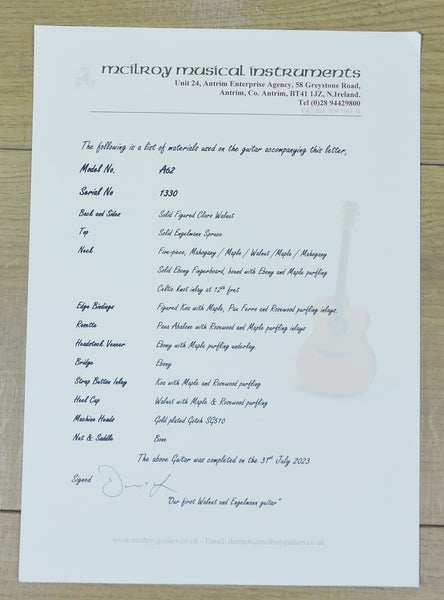 mcilroy musical instruments
Unit 24, Antrim Enterprise Agency, 58 Greystone Road,
Antrim, Co. Antrim, BT41 1JZ, N.Ireland.
Tel (0)28 94429800
The following is a list of materials used on the guitar accompanying this letter,
Model No. A62
Serial No 1330
Back and Sides Solid Figured Claro Walnut
Top Solid Engelmann Spruce
Neck Five-piece, Mahogany / Maple / Walnut /Maple / Mahogany
Solid Ebony Fingerboard, bound with Ebony and Maple purfling
Celtic knot inlay at 12th fret
Edge Bindings Figured Koa with Maple, Pau Ferro and Rosewood purfling inlays.
Rosette Paua Abalone with Rosewood and Maple purfling inlays
Headstock Veneer Ebony with Maple purfling underlay.
Bridge Ebony
Strap Button Inlay Koa with Maple and Rosewood purfling
Heel Cap Walnut with Maple & Rosewood purfling
Machine Heads Gold plated Gotoh SG510
Nut & Saddle Bone
The above Guitar was completed on the 31st July 2023
Signed
"Our first Walnut and Engelmann guitar"
www.mcilroyguitars.co.uk - Email: dermot@mcilroyguitars.co.uk